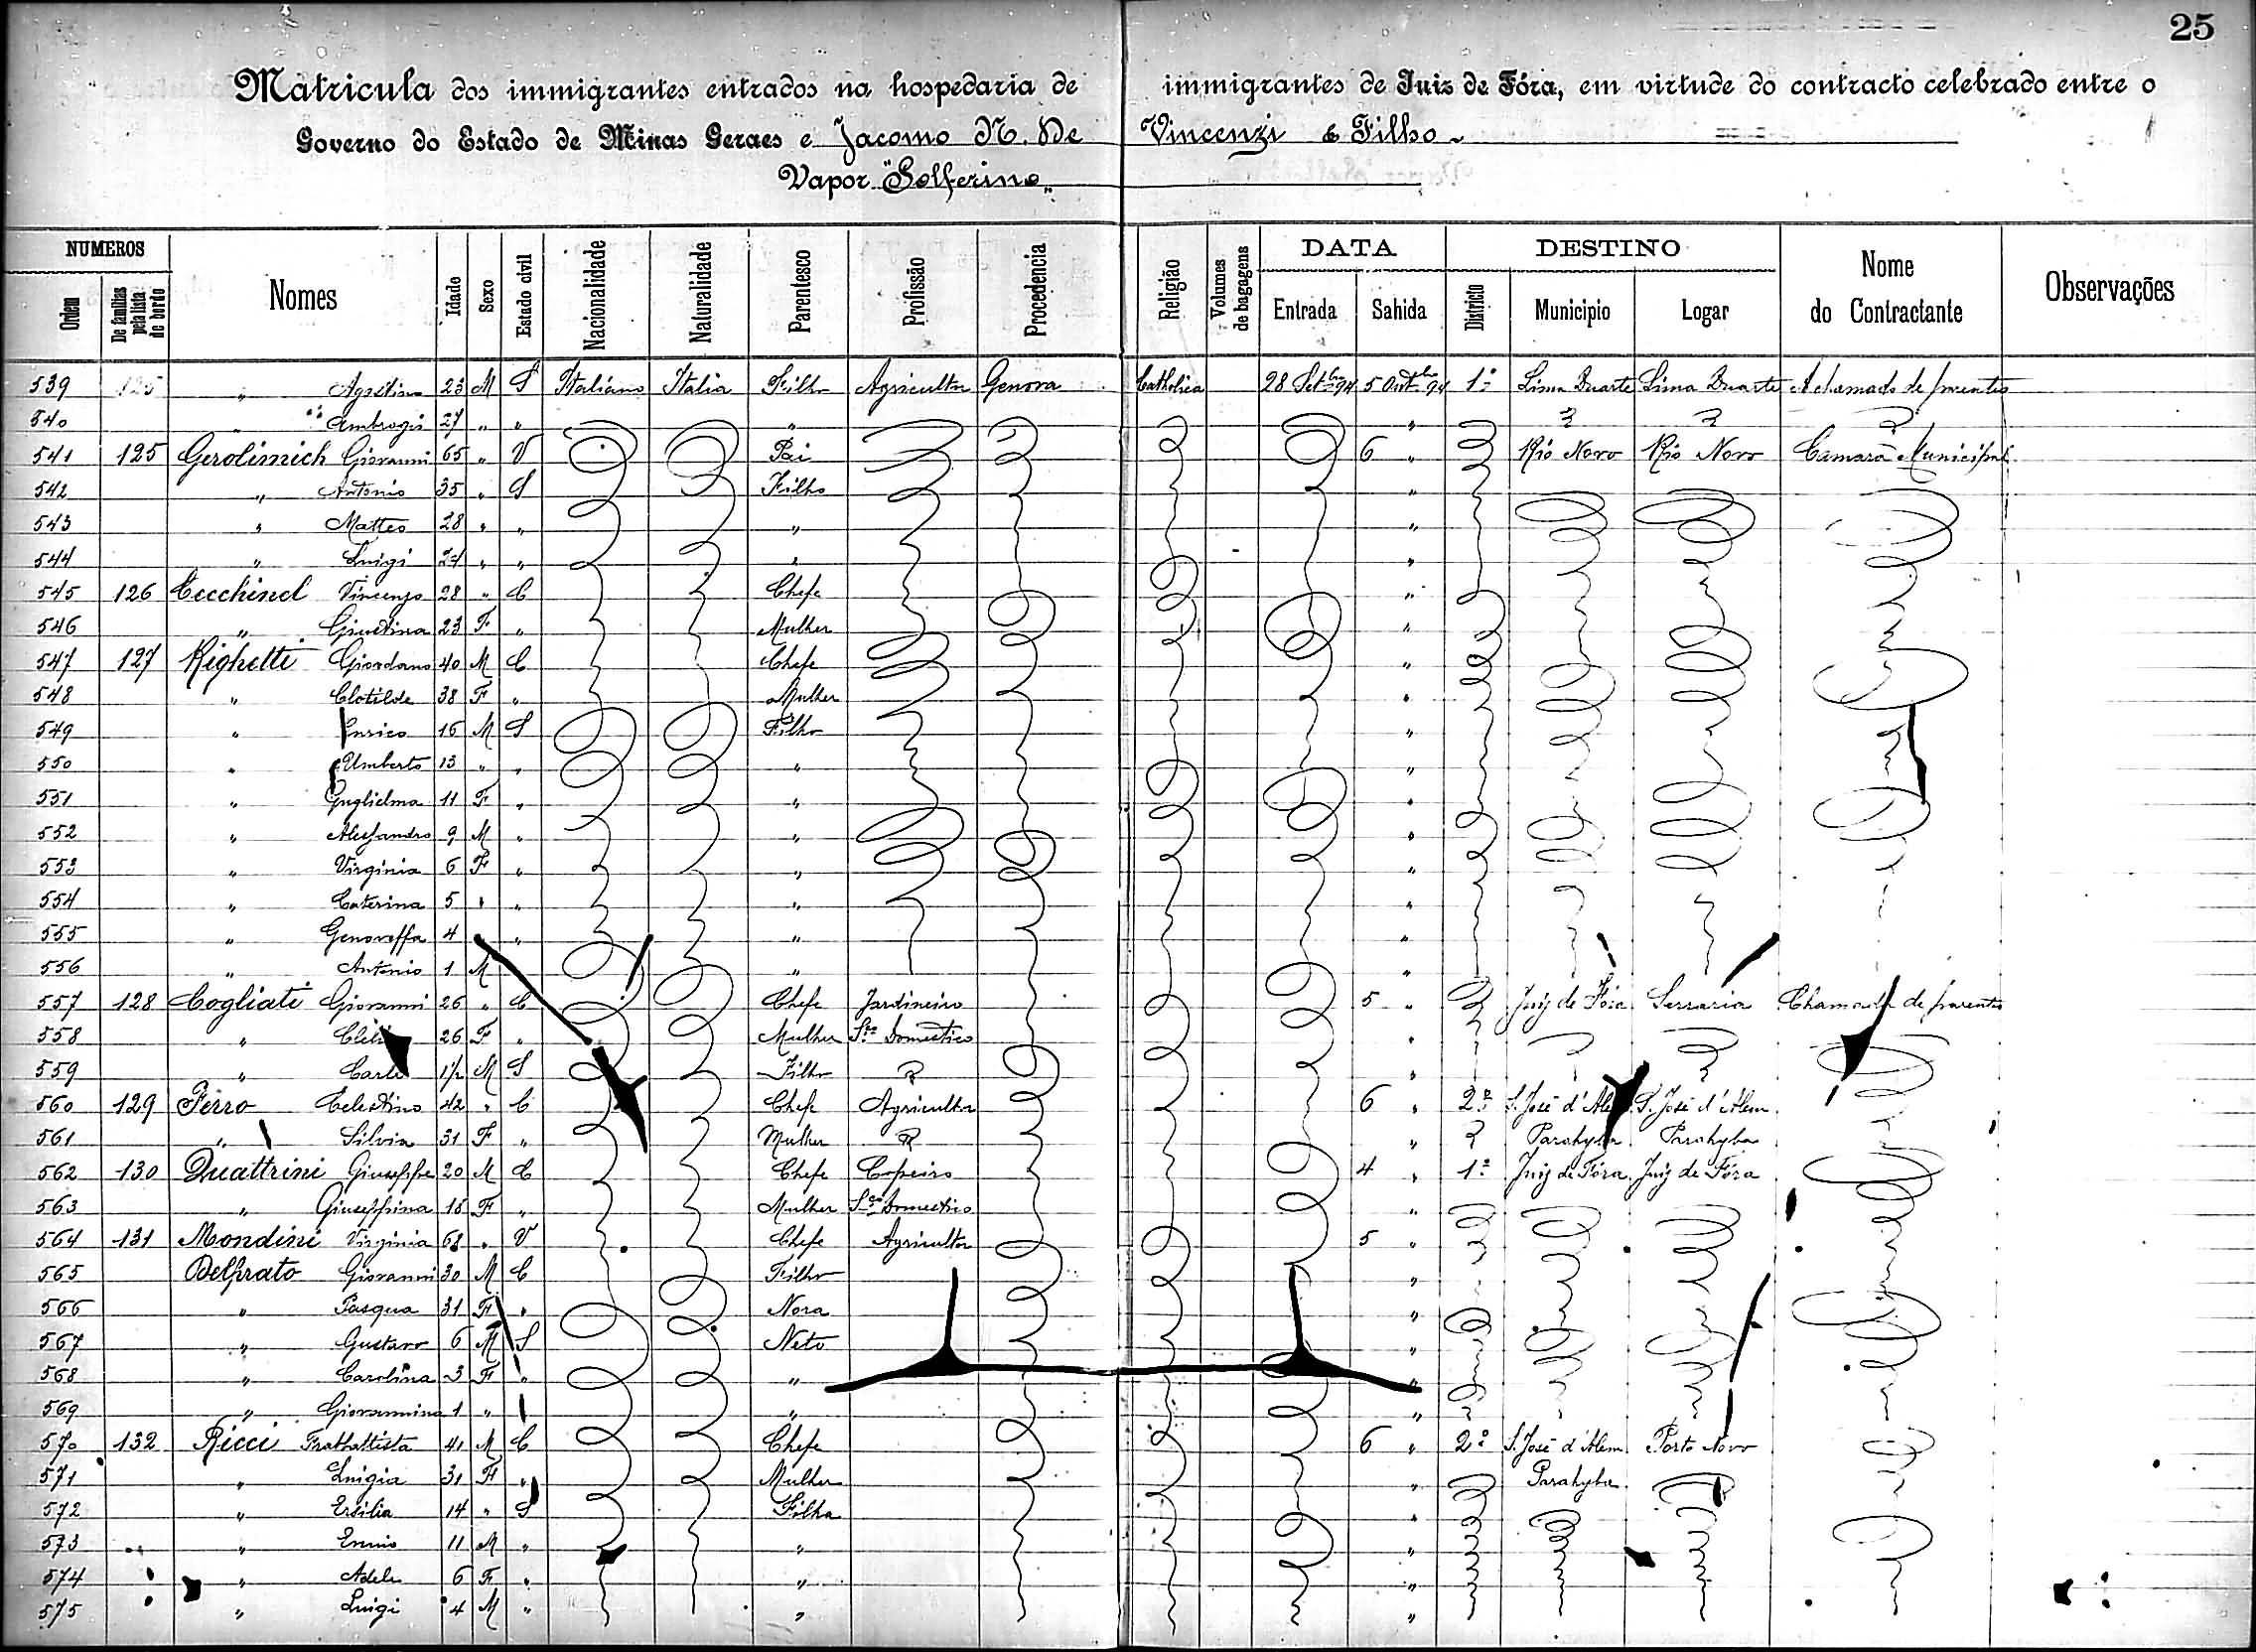 25
Matricula dos immigrantes entrados na hospedaria de immigrantes de Juiz de Fóra, em virtude do contracto celebrado entre o
Governo do Estado de Minas Geraes e Jacomo N. De Vincenzi & Filho
Vapor "Solferino"
NUMEROS Nomes Idade Sexo Estado civil Nacionalidade Naturalidade Parentesco Profissão Procedencia Religião Volumes de bagagens DATA DESTINO Nome do Contractante Observações
Ordem De familias pela lista de bordo Entrada Sahida Districto Municipio Logar
539 125 " Agostino 23 M S Italiano Italia Filho Agricultor Genova Catholica 28 Setbro 94 5 Outbro 94 1º Lima Duarte Lima Duarte A chamado de parentes
540 " Ambrogio 27 " " " "
541 125 Gerolimich Giovanni 65 " V Pai 6 " Rio Novo Rio Novo Camara Municipal
542 " Antonio 35 " S Filho "
543 " Matteo 28 " " " "
544 " Luigi 24 " " " "
545 126 Cecchinel Vincenzo 28 " C Chefe "
546 " Giustina 23 F " Mulher "
547 127 Righetti Giordano 40 M C Chefe "
548 " Clotilde 38 F " Mulher "
549 " Enrico 16 M S Filho "
550 " Umberto 13 " " " "
551 " Guglielma 11 F " " "
552 " Alessandro 9 M " " "
553 " Virginia 6 F " " "
554 " Caterina 5 " " " "
555 " Genoveffa 4 " " "
556 " Antonio 1 M " "
557 128 Cogliati Giovanni 26 " C Chefe Jardineiro 5 " Juiz de Fóra Serraria Chamado de parentes
558 " 26 F " Mulher Sço Domestico "
559 " Carlo 1½ M S Filho "
560 129 Ferro Celestino 42 " C Chefe Agricultor 6 " 2º S. José d'Alem S. José d'Alem
561 " Silvia 31 F " Mulher " Parahyba Parahyba
562 130 Quattrini Giuseppe 20 M C Chefe Copeiro 4 " 1º Juiz de Fóra Juiz de Fóra
563 " Giuseppina 18 F " Mulher Sço Domestico "
564 131 Mondini Virginia 68 " V Chefe Agricultor 5 "
565 Delprato Giovanni 30 M C Filho "
566 " Pasqua 31 F " Nora "
567 " Gustavo 6 M S Neto "
568 " Carolina 3 F " " "
569 " Giovannina 1 " " "
570 132 Ricci Frabattista 41 M C Chefe 6 " 2º S. José d'Alem Porto Novo
571 " Luigia 31 F " Mulher " Parahyba
572 " Ersilia 14 " S Filha "
573 " Ennio 11 M " " "
574 " Adele 6 F " " "
575 " Luigi 4 M " " "